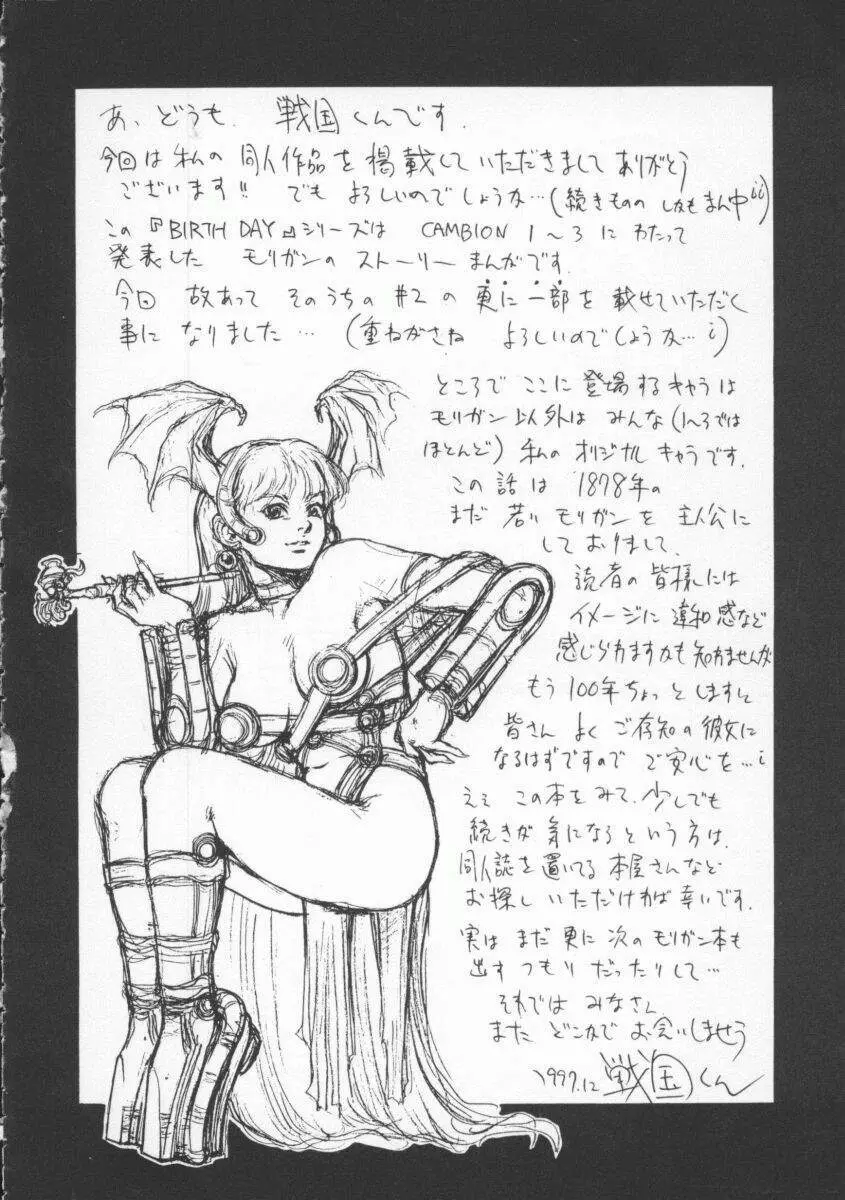 あ、どうも、戦国くんです。
今回は私の同人作品を掲載していただきましてありがとう
ございます!! でもよろしいのでしょうか…(続きもの しかもまん中¡¡)
この『BIRTH DAY』シリーズは CAMBION 1〜3 にわたって
発表した モリガンのストーリーまんがです。
今回 故あって そのうちの #2 の 更に一部を 載せていただく
事に なりました… (重ねがさね よろしいのでしょうか…¡)
ところで ここに 登場するキャラは
モリガン以外は みんな(1〜3では
ほとんど) 私の オリジナルキャラです。
この話は 1878年の
まだ 若い モリガンを 主人公に
しておりまして、
読者の皆様には
イメージに 違和感など
感じられますかも知れませんが
もう 100年ちょっとしますと
皆さん よく ご存知の彼女に
なるはずですので ご安心を…¡
えぇ この本をみて、少しでも
続きが 気になるという方は、
同人誌を置いてる 本屋さんなど
お探し いただければ 幸いです。
実は まだ 更に 次の モリガン本も
出すつもりだったりして…
それでは みなさん
また どこかで お会いしましょう
1997.12 戦国くん